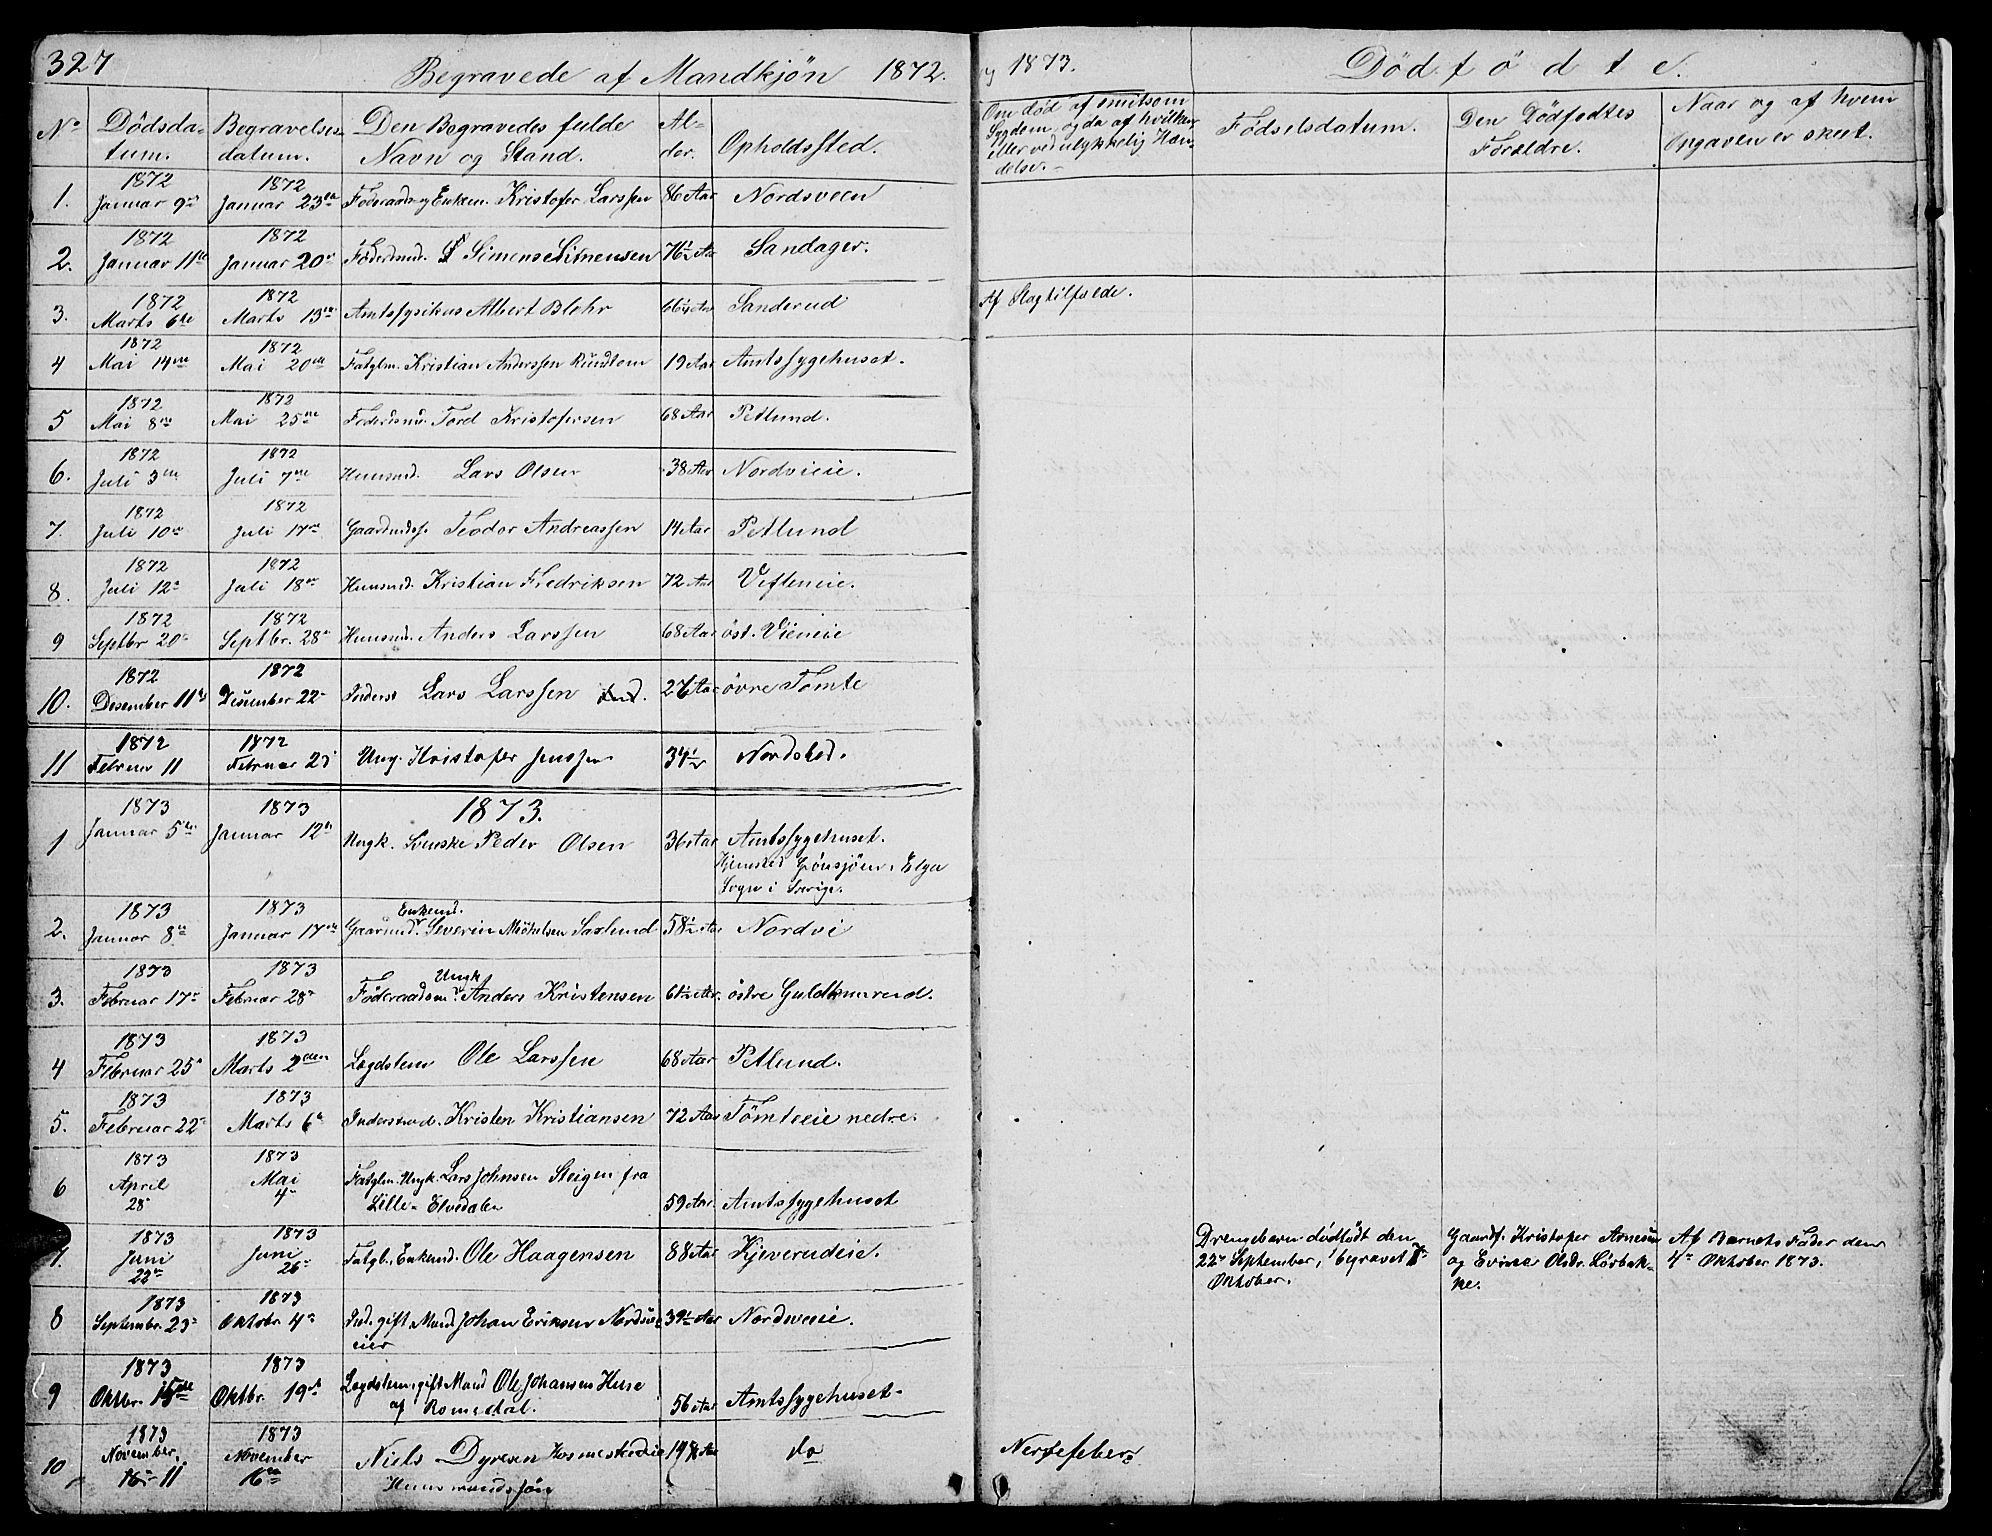 327
Begravede af Mandkjøn 1872.
No
Dødsda-
tum.
Begravelses-
datum.
Den Begravedes fulde
Navn og Stand.
Al-
der.
Opholdssted.
1. 1872 Januar 9de 1872 Januar 23de Føderaads- og Enkem. Kristofer Larssen 86 Aar Nordsveen
2. 1872 Januar 11te 1872 Januar 20de Føderdmd. Simen Simensen 76½ Aar Sandager.
3. 1872 Marts 6te 1872 Marts 13de Amtsfysikus Albert Blehr 66¼ Aar Sanderud
4 1872 Mai 14de 1872 Mai 20de Fatglm. Kristian Anderssen Rundtom 19 Aar Amtssygehuset.
5 1872 Mai 8de 1872 Mai 25de Føderdmd. Tord Kristofersen 68 Aar Petlund.
6. 1872 Juli 3die 1872 Juli 7de Husmd. Lars Olsen 38 Aar Nordvieie.
7. 1872 Juli 10de 1872 Juli 17de Gaardmds. Teodor Andreassen 14 Aar Petlund
8. 1872 Juli 12te 1872 Juli 18de Husmd. Kristian Fredriksen 72 Aar Vifteneie.
9 1872 Septbr 20de 1872 Septbr. 28de Husmd. Anders Larssen 68 Aar øst. Vieneie
10. 1872 Desember 11te 1872 Desember 22de Inderst Lars Larssen 26 Aar øvre Tomte
11 1872 Februar 11 1872 Februar 23 Ung. Kristofer Jenssen 34½ Nordsted.
1873.
1 1873 Januar 5te 1873 Januar 12te Ungk. Svenske Peder Olsen 36 Aar Amtssygehuset.
Hjemsted Grønsjøen, Elga
Sogn i Sverige.
2. 1873 Januar 8de 1873 Januar 17de Enkemd.
Gaardmd. Severin Mikkelsen Saxlund 58½ Aar Nordvi
3. 1873 Februar 17de 1873 Februar 28de Ungk
Føderaadsmd. Anders Kristensen 61½ Aar. østre Guldkunrud.
4 1873 Februar 25de 1873 Marts 2den Lægdslem Ole Larssen 68 Aar Petlund.
5. 1873 Februar 22de 1873 Marts 6te Inderstmd. Kristen Kristiansen 72 Aar Tømteeie nedre.
6 1873 April 28de 1873 Mai 4de Fatglm. Ungk. Lars Johnsen Steigen fra
Lille-Elvedalen 59 Aar. Amtssygehuset
7. 1873 Juni 22de 1873 Juni 26de Fatgl. Enkemd. Ole Haagensen 88 Aar Kjeverudeie.
8 1873 Septembr. 23de 1873 Oktobr. 4de Ind. gift Mand Johan Eriksen Nordvi
eier 39½ Aar Nordvieie.
9 1873 Oktbr. 15de 1873 Oktbr. 19de Lægdslem, gift Mand Ole Johansen Huse
af Romedal. 56 Aar Amtssygehuset
10 1873 November 16de 11 1873 November 16de Niels Dyresen
Husmandssøn 19 Aar do
og 1873.
Dødfødte.
Om død af smitsom
Sygdom, og da af hvilken,
eller ved ulykkelig Hæn-
delse.
Fødselsdatum.
Den Dødfødtes
Forældre.
Naar og af hvem
Opgaven er skeet.
Af Slagtilfælde.
Drengebarn dødfødt den
22de September, begravet
Oktober.
Gaardf. Kristofer Arnesen
og Evine Olsdr. Løvbak-
ke.
Af Barnets Fader den
4de Oktober 1873.
Nervefeber.